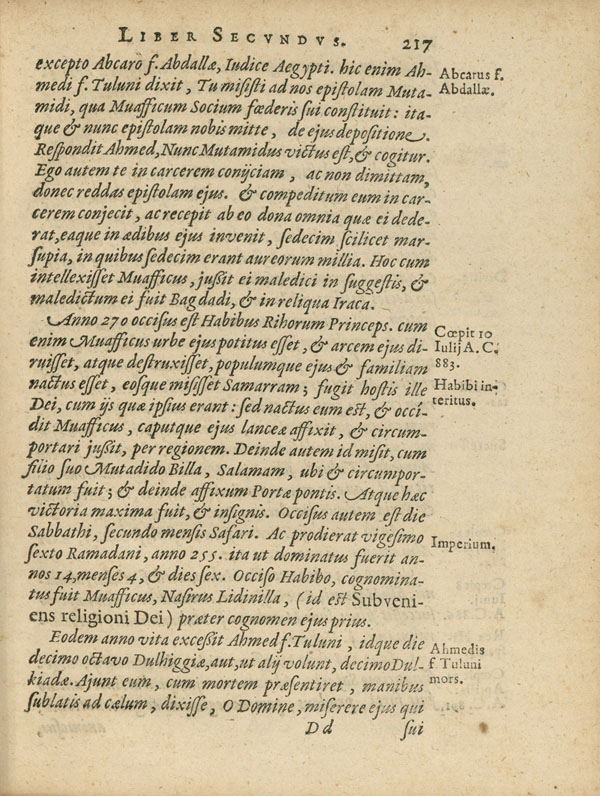 LIBER SECVNDVS. 217
excepto Abcaro f. Abdallæ, Iudice Aegypti. hic enim Ah-
medi f. Tuluni dixit, Tu misisti ad nos epistolam Muta-
midi, qua Muafficum Socium fœderis sui constituit: ita-
que & nunc epistolam nobis mitte, de ejus depositione.
Respondit Ahmed, Nunc Mutamidus victus est, & cogitur.
Ego autem te in carcerem conijciam, ac non dimittam,
donec reddas epistolam ejus. & compeditum eum in car-
cerem conjecit, ac recepit ab eo dona omnia quæ ei dede-
rat, eaque in ædibus ejus invenit, sedecim scilicet mar-
supia, in quibus sedecim erant aureorum millia. Hoc cum
intellexisset Muafficus, jussit ei maledici in suggestis, &
maledictum ei fuit Bagdadi, & in reliqua Iraca.
Anno 270 occisus est Habibus Rihorum Princeps. cum
enim Muafficus urbe ejus potitus esset, & arcem ejus di-
ruisset, atque destruxisset, populumque ejus & familiam
nactus esset, eosque misisset Samarram; fugit hostis ille
Dei, cum ijs quæ ipsius erant: sed nactus eum est, & occi-
dit Muafficus, caputque ejus lanceæ affixit, & circum-
portari jussit, per regionem. Deinde autem id misit, cum
filio suo Mutadido Billa, Salamam, ubi & circumpor-
tatum fuit; & deinde affixum Portæ pontis. Atque hæc
victoria maxima fuit, & insignis. Occisus autem est die
Sabbathi, secundo mensis Safari. Ac prodierat vigesimo
sexto Ramadani, anno 255. ita ut dominatus fuerit an-
nos 14, menses 4, & dies sex. Occiso Habibo, cognomina-
tus fuit Muafficus, Nasirus Lidinilla, (id est Subveni-
ens religioni Dei) præter cognomen ejus prius.
Eodem anno vita excessit Ahmed f. Tuluni, idque die
decimo octavo Dulhiggiæ, aut, ut alij volunt, decimo Dul-
kiadæ. Ajunt eum, cum mortem præsentiret, manibus
sublatis ad cælum, dixisse, O Domine, miserere ejus qui
D d sui
Abcarus f.
Abdallæ.
Cœpit 10
Iulij A. C.
883.
Habibi in-
teritus.
Imperium.
Ahmedis
f Tuluni
mors.